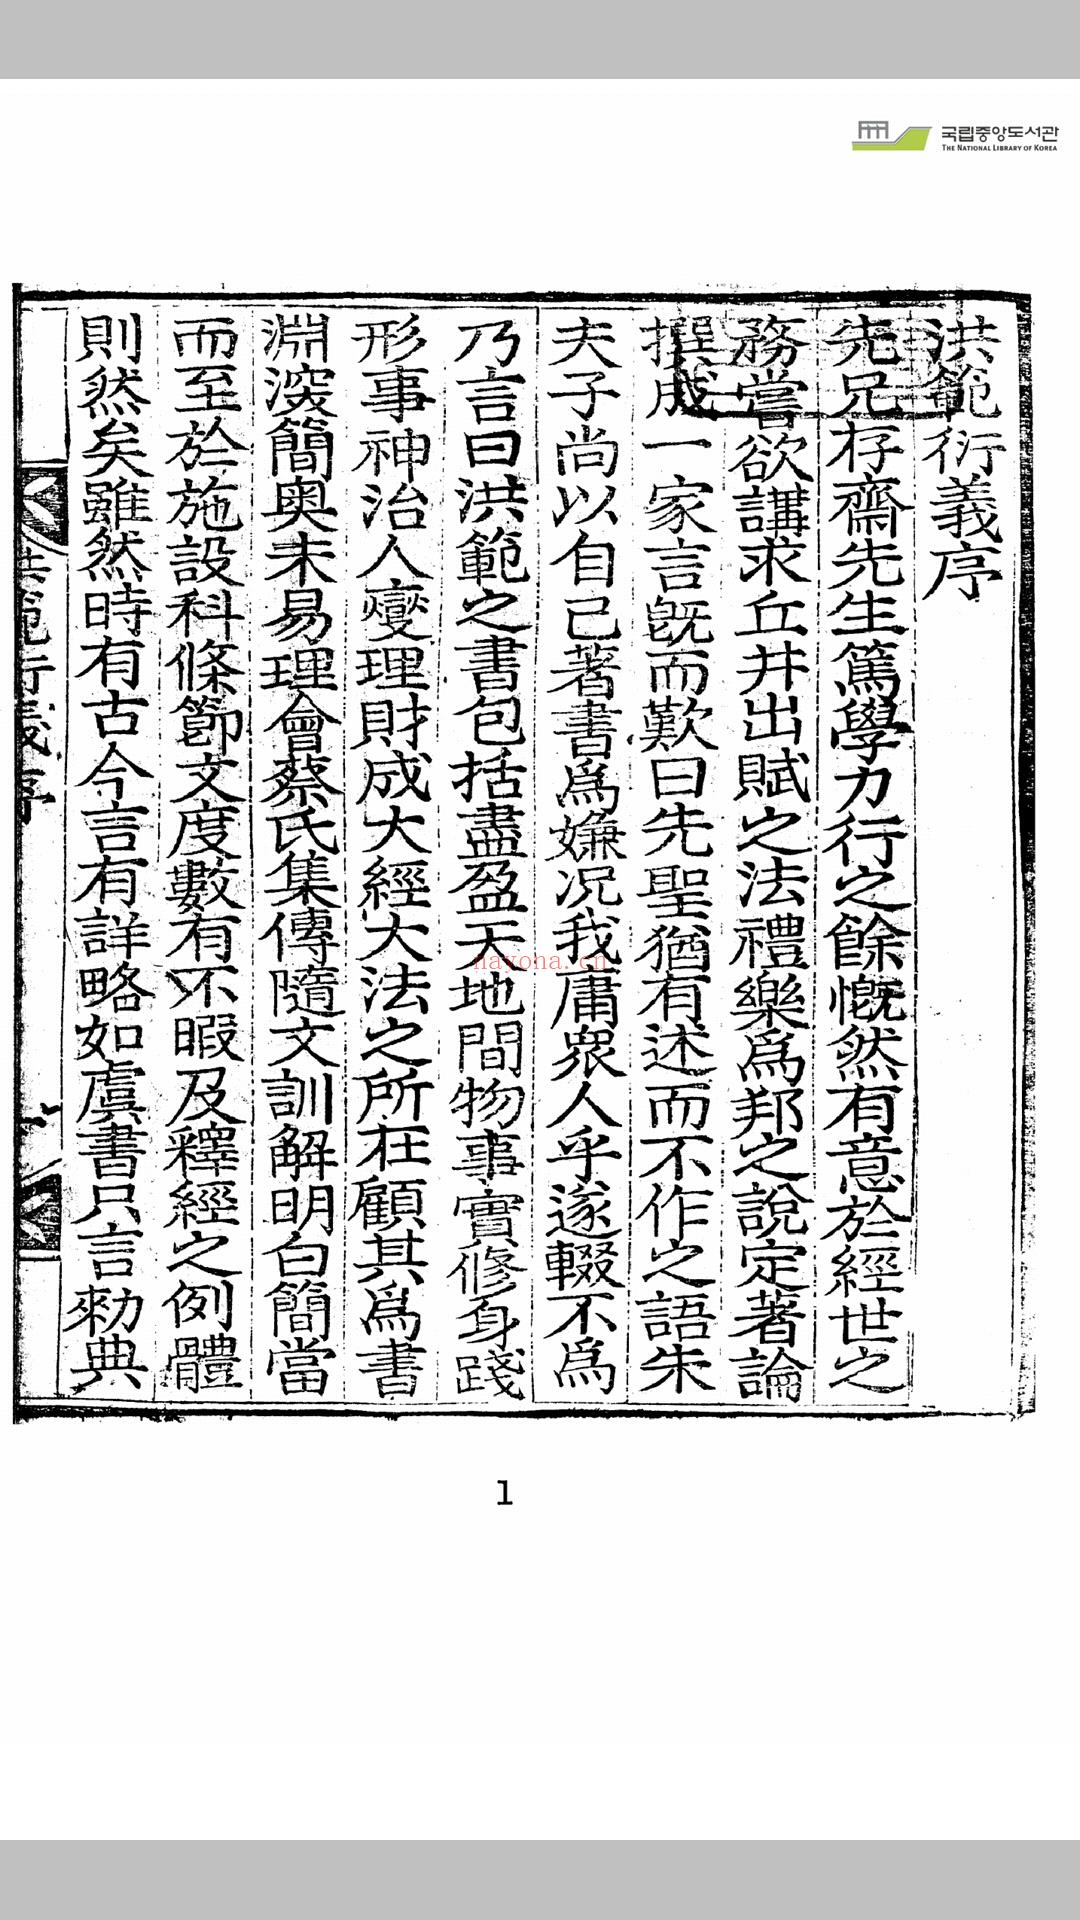 국립중앙도서관
THE NATIONAL LIBRARY OF KOREA
洪範衍義序
先兄存齋先生篤學力行之餘慨然有意於經世之
務嘗欲講求丘井出賦之法禮樂爲邦之說定著論
撰成一家言旣而歎曰先聖猶有述而不作之語朱
夫子尚以自己著書爲嫌况我庸衆人乎遂輟不爲
乃言曰洪範之書包括盡盈天地間物事實修身踐
形事神治人燮理財成大經大法之所在顧其爲書
淵深簡奧未易理會蔡氏集傳隨文訓解明白簡當
而至於施設科條節文度數有不暇及釋經之例體
則然矣雖然時有古今言有詳略如虞書只言勑典
洪範衍義序
一
nayona.cn
1